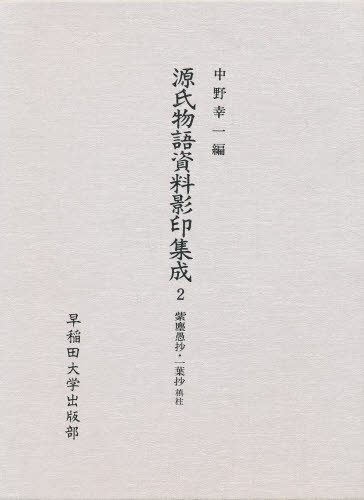 中野幸一編
源氏物語資料影印集成
2
紫塵愚抄・一葉抄 槙柱
早稲田大学出版部